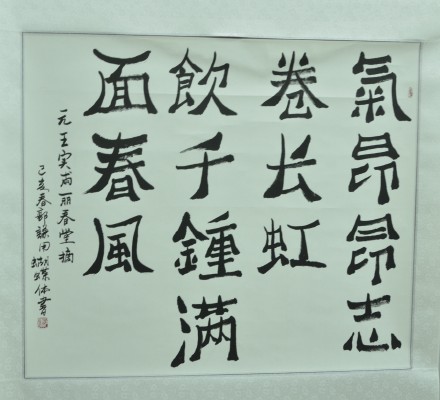 氣昂昂志
卷长虹
飲千鍾满
面春風
元王实甫丽春堂摘
己亥春郭謙用蝴蝶体書